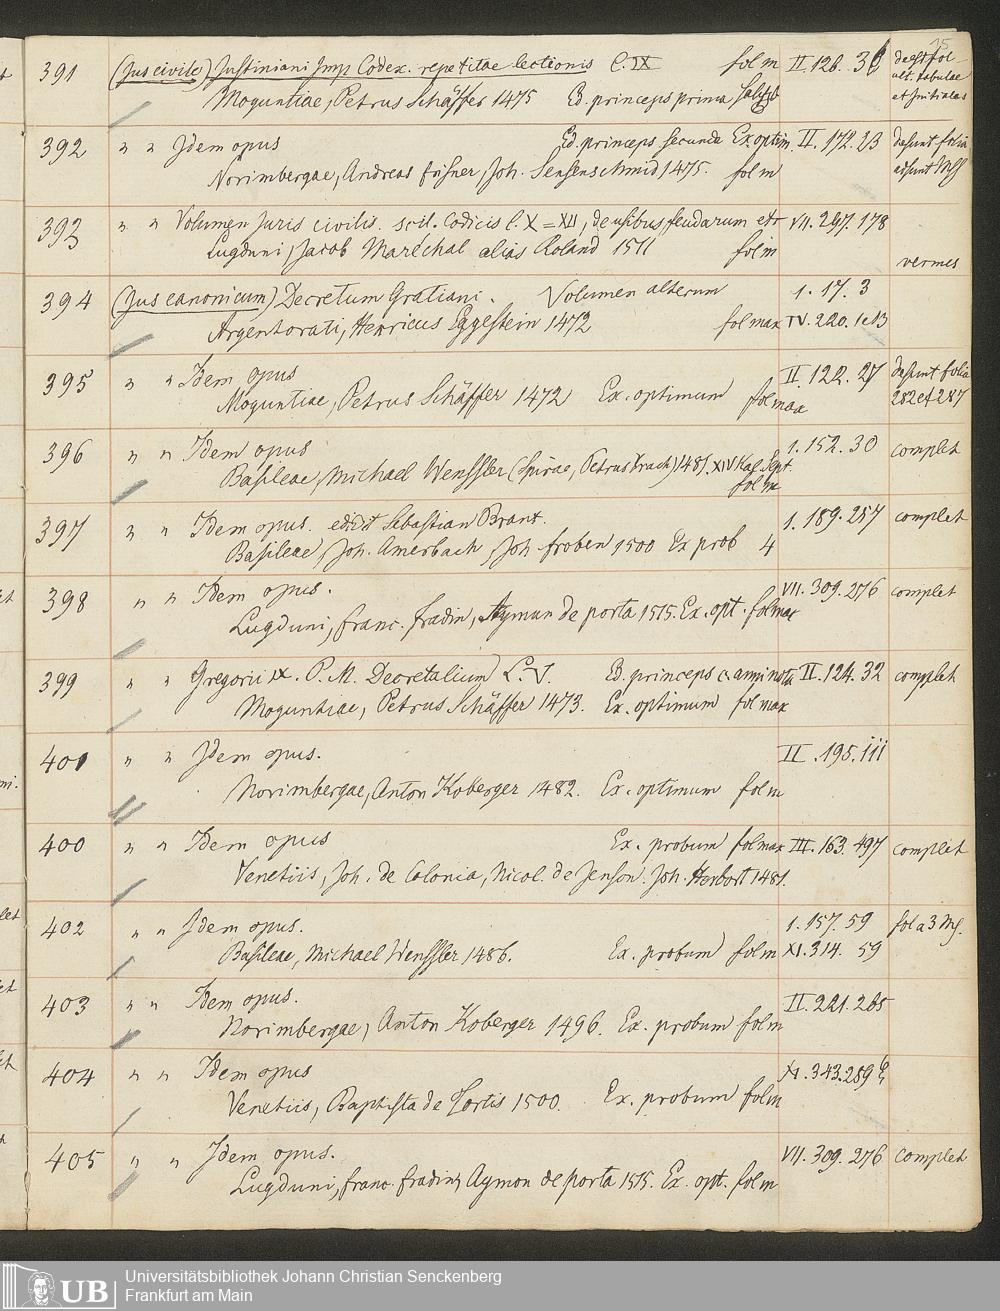 25
391 (Jus civile) Justiniani Imp Codex. repetitae lectionis L. IX fol m II 126. 36 deest fol
Moguntiae, Petrus Schäffer 1475 Ed. princeps prima ult. tabulae
et Initiales
392 " " Idem opus Ed. princeps secunda Ex optim. II. 172. 23 desunt folia
Norimbergae, Andreas Frisner, Joh. Sensenschmid 1475. fol m
393 " " Volumen Juris civilis scil. Codicis L. X = XII, de usibus feudarum etc VII. 297. 178
Lugduni, Jacob Maréchal alias Roland 1511 fol m vermes
394 (Jus canonicum) Decretum Gratiani. Volumen alterum 1. 17. 3
Argentorati, Henricus Eggestein 1472 fol max IV. 220.
395 " " Idem opus II. 122. 27 desunt folia
Moguntiae, Petrus Schäffer 1472 Ex. optimum fol max 282 et 287
396 " " Idem opus 1. 152. 30 complet
Basileae, Michael Wenssler (Spirae, Petrus Drach) 1481. XIV Kal Sept.
fol m
397 " " Idem opus. edidit Sebastian Brant. 1. 189. 257 complet
Basileae, Joh. Amerbach, Joh Froben 1500 Ex prob 4
398 " " Idem opus. VII. 309. 276 complet
Lugduni, Franc. Fradin, Aymon de porta 1515. Ex. opt. fol max
399 " " Gregorii IX. P. M. Decretalium L. V. Ed. princeps c. anni nota II. 124. 32 complet
Moguntiae, Petrus Schäffer 1473. Ex. optimum fol max
401 " " Idem opus. II. 195. iii
Norimbergae, Anton Koberger 1482. Ex. optimum fol m
400 " " Idem opus Ex. probum fol max III. 163. 497 complet
Venetiis, Joh. de Colonia, Nicol. de Jenson. Joh. Herbort 1481.
402 " " Idem opus. 1. 157. 59 fol a 3 Ms.
Basileae, Michael Wenssler 1486. Ex. probum fol m XI. 314. 59
403 " " Idem opus. II. 221. 265
Norimbergae, Anton Koberger 1496. Ex. probum fol m
404 " " Idem opus XI. 343. 289
Venetiis, Baptista de Tortis 1500. Ex. probum fol m
405 " " Idem opus. VII. 309. 276 complet
Lugduni, franc. fradin, Aymon de porta 1515. Ex. opt. fol m
UB
Universitätsbibliothek Johann Christian Senckenberg
Frankfurt am Main